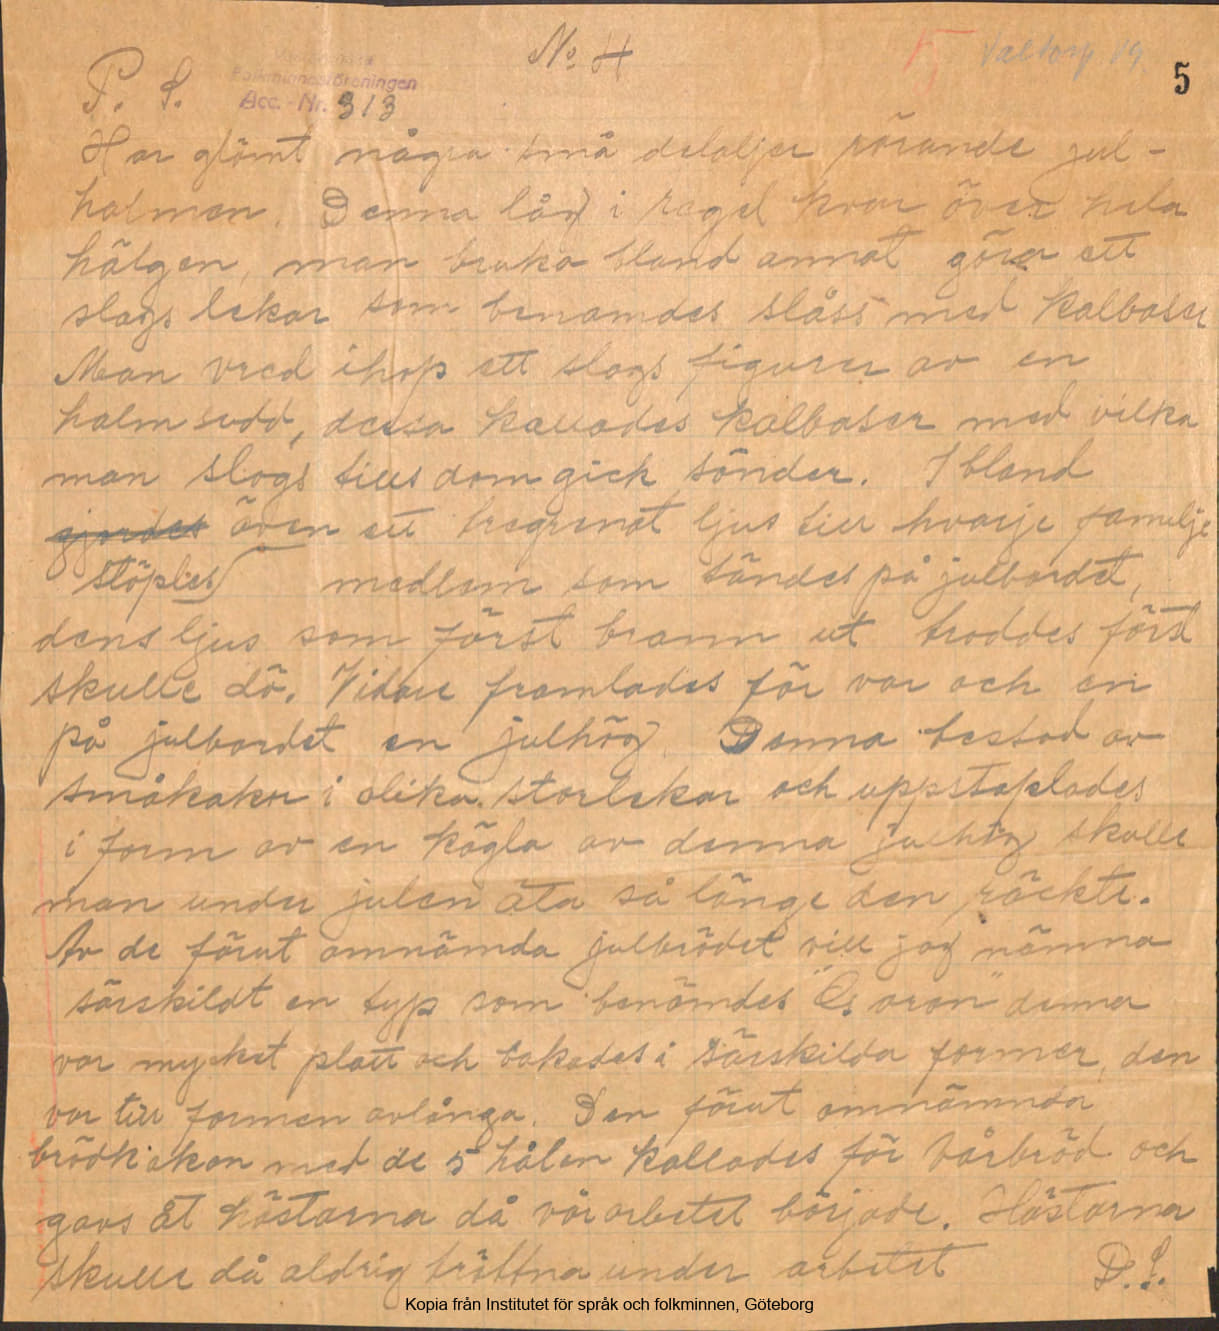 No. 4
Valtorp Vg.
5
P. S.
Folkminnesföreningen
Acc. - Nr. 313
Har glömt några små detaljer rörande jul-
halmen. Denna låg i regel kvar över hela
hälgen, man bruka bland annat göra ett
slags lekar som benämdes slåss med kalbasar
Man vred ihop ett slags figurer av en
halmsudd, dessa kallades kalbasar med vilka
man slogs tills dom gick sönder. Ibland
gjordes även ett tregrenat ljus till hvarje familje
stöptes medlem som tändes på julbordet,
dens ljus som först brann ut troddes först
skulle dö. Vidare framlades för var och en
på julbordet en julhög. Denna bestod av
småkakor i olika storlekar och uppstaplades
i form av en kägla av denna julhög skulle
man under julen äta så länge den räckte.
Av de förut omnämda julbrödet vill jag nämna
särskildt en typ som benämdes "Os oron" denna
var mycket platt och bakades i särskilda former, den
var till formen avlånga. Den förut omnämnda
brödkakan med de 5 hålen kallades för Vårbröd och
gavs åt hästarna då vårarbetet började. Hästarna
skulle då aldrig tröttna under arbetet
D.S.
Kopia från Institutet för språk och folkminnen, Göteborg